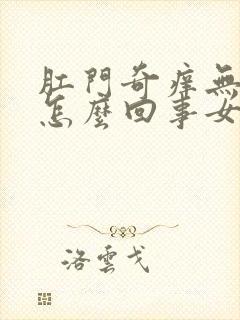 肛門奇癢無
怎麼回事女
洛雲戈